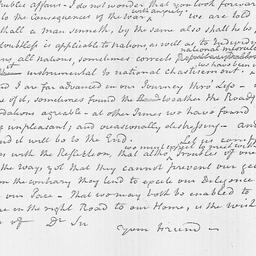 Public affair - I do not wonder that you look forward
to the Consequences of the War with anxiety. we are told
shall a man smiteth, by the same also shall he
doubtless is applicable to nations, as well as to Individu
all nations, sometimes corrects
instrumental to national chastisement.
and I are far advanced in our Journey thro' Life -
of it, sometimes found the weather & the Roads
agreeable - at other times we have found
unpleasant; and occasionally distressing - and
it will be to the End. Let us comfort
us with the Reflection, that altho' we must expect to meet with troubles
the way, yet that they cannot prevent our get
on the contrary they tend to excite our diligence
our Pace - That we may both be enabled to
in the right Road to our Home, is the wish
of Dr Sir
your friend